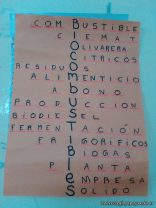 COMBUSTIBLE
CIEMAT
OLIVARERA
CITRICOS
RESIDUOS
ALIMENTICIO
ABONO
PRODUCCION
BIODIESEL
FERMENTACIÓN
FRIGORIFICOS
BIOGAS
PLANTA
EMPRESA
SOLIDO